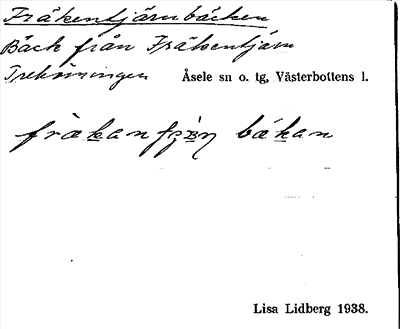 Fräkentjärnbäcken
Bäck från Fräkentjärn
Trehörningen Åsele sn o. tg, Västerbottens l.
bákan
Lisa Lidberg 1938.